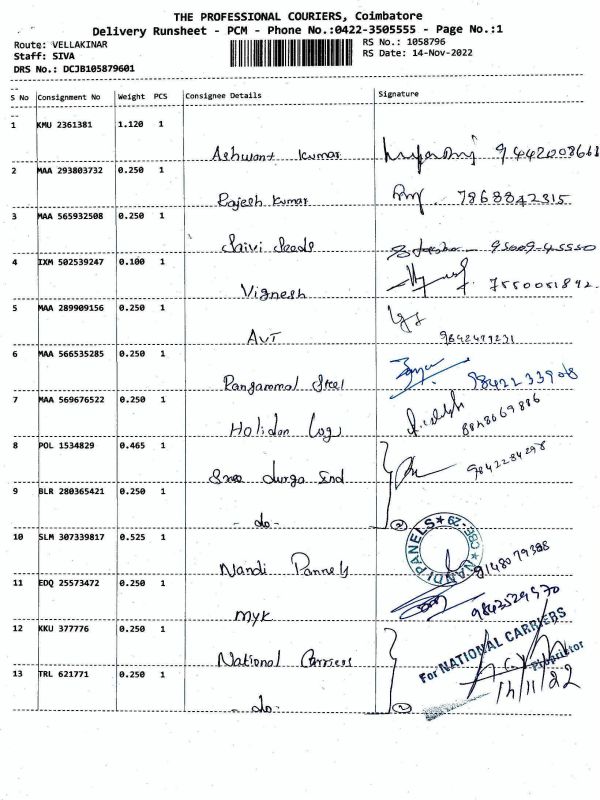 THE PROFESSIONAL COURIERS, Coimbatore
Delivery Runsheet - PCM - Phone No.:0422-3505555 - Page No.:1
Route: VELLAKINAR
RS No.: 1058796
Staff: SIVA
RS Date: 14-Nov-2022
DRS No.: DCJB105879601
S No Consignment No Weight PCS Consignee Details Signature
1 KMU 2361381 1.120 1
Ashwant Kumar
2 MAA 293803732 0.250 1
Rajesh Kumar 7868842315
3 MAA 565932508 0.250 1
Saivi Seeds
4 IXM 502539247 0.100 1
Vignesh 7550051892
5 MAA 289909156 0.250 1
AVT 9842479231
6 MAA 566535285 0.250 1
Rangammal Steel
7 MAA 569676522 0.250 1
Holidon Log
8 POL 1534829 0.465 1
Sree durga Ind 9842284298
9 BLR 280365421 0.250 1
- do - 2
10 SLM 307339817 0.525 1
NANDI PANELS CBE-29
Nandi Pannels
11 EDQ 25573472 0.250 1
myk
12 KKU 377776 0.250 1
National Carriers
For NATIONAL CARRIERS
Proprietor
13 TRL 621771 0.250 1
14/11/22
- do - 2